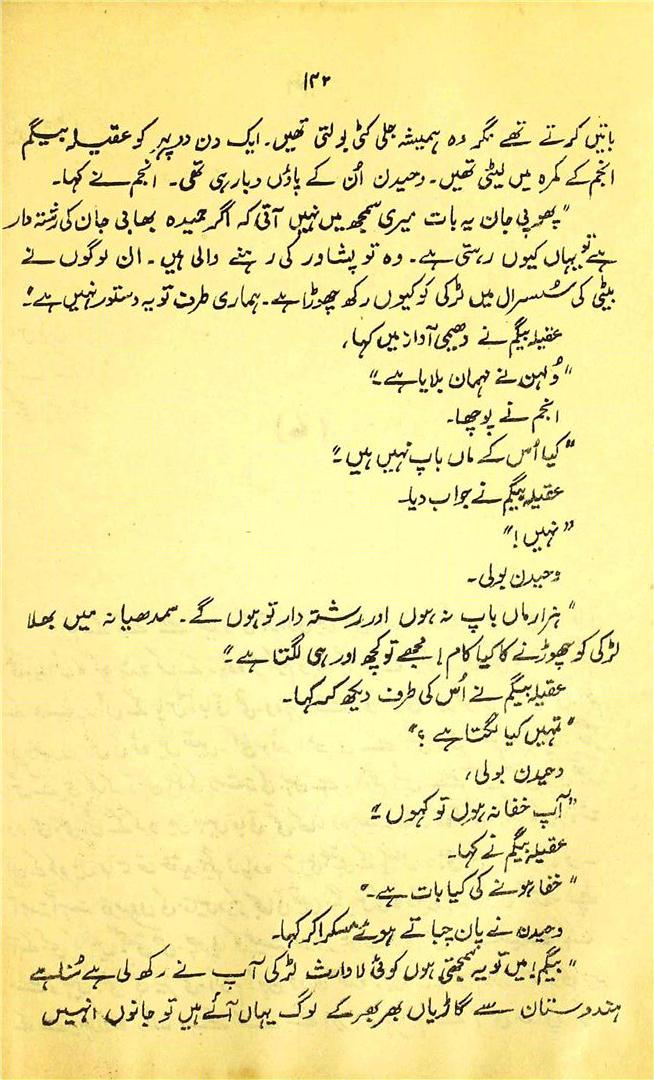 ۱۳۲
باتیں کرتے تھے مگر وہ ہمیشہ جلی کٹی بولتی تھیں۔ ایک دن دوپہر کو عقیلہ بیگم
انجم کے کمرہ میں لیٹی تھیں۔ وحیدن اُن کے پاؤں دبا رہی تھی۔ انجم نے کہا۔
"پھوپی جان یہ بات میری سمجھ میں نہیں آتی کہ اگر حمیدہ بھابی جان کی رشتہ دار
ہے تو یہاں کیوں رہتی ہے۔ وہ تو پشاور کی رہنے والی ہیں۔ ان لوگوں نے
بیٹی کی سُسرال میں لڑکی کو کیوں رکھ چھوڑا ہے۔ ہماری طرف تو یہ دستور نہیں ہے"۔
عقیلہ بیگم نے دھیمی آواز میں کہا،
"دُلہن نے مہمان بلایا ہے۔"
انجم نے پوچھا۔
"کیا اُس کے ماں باپ نہیں ہیں۔"
عقیلہ بیگم نے جواب دیا۔
"نہیں!"
وحیدن بولی۔
"ہزار ماں باپ نہ ہوں اور رشتہ دار تو ہوں گے۔ سمدھیانہ میں بھلا
لڑکی کو چھوڑنے کا کیا کام! مجھے تو کچھ اور ہی لگتا ہے۔"
عقیلہ بیگم نے اُس کی طرف دیکھ کر کہا۔
"تمہیں کیا لگتا ہے؟"
وحیدن بولی،
"آپ خفا نہ ہوں تو کہوں۔"
عقیلہ بیگم نے کہا۔
"خفا ہونے کی کیا بات ہے۔"
وحیدن نے پان چباتے ہوئے مسکرا کر کہا۔
"بیگم! میں تو یہ سمجھتی ہوں کوئی لاوارث لڑکی آپ نے رکھ لی ہے سُنا ہے
ہندوستان سے گاڑیاں بھر بھر کے لوگ یہاں آئے ہیں تو جانوں انہیں